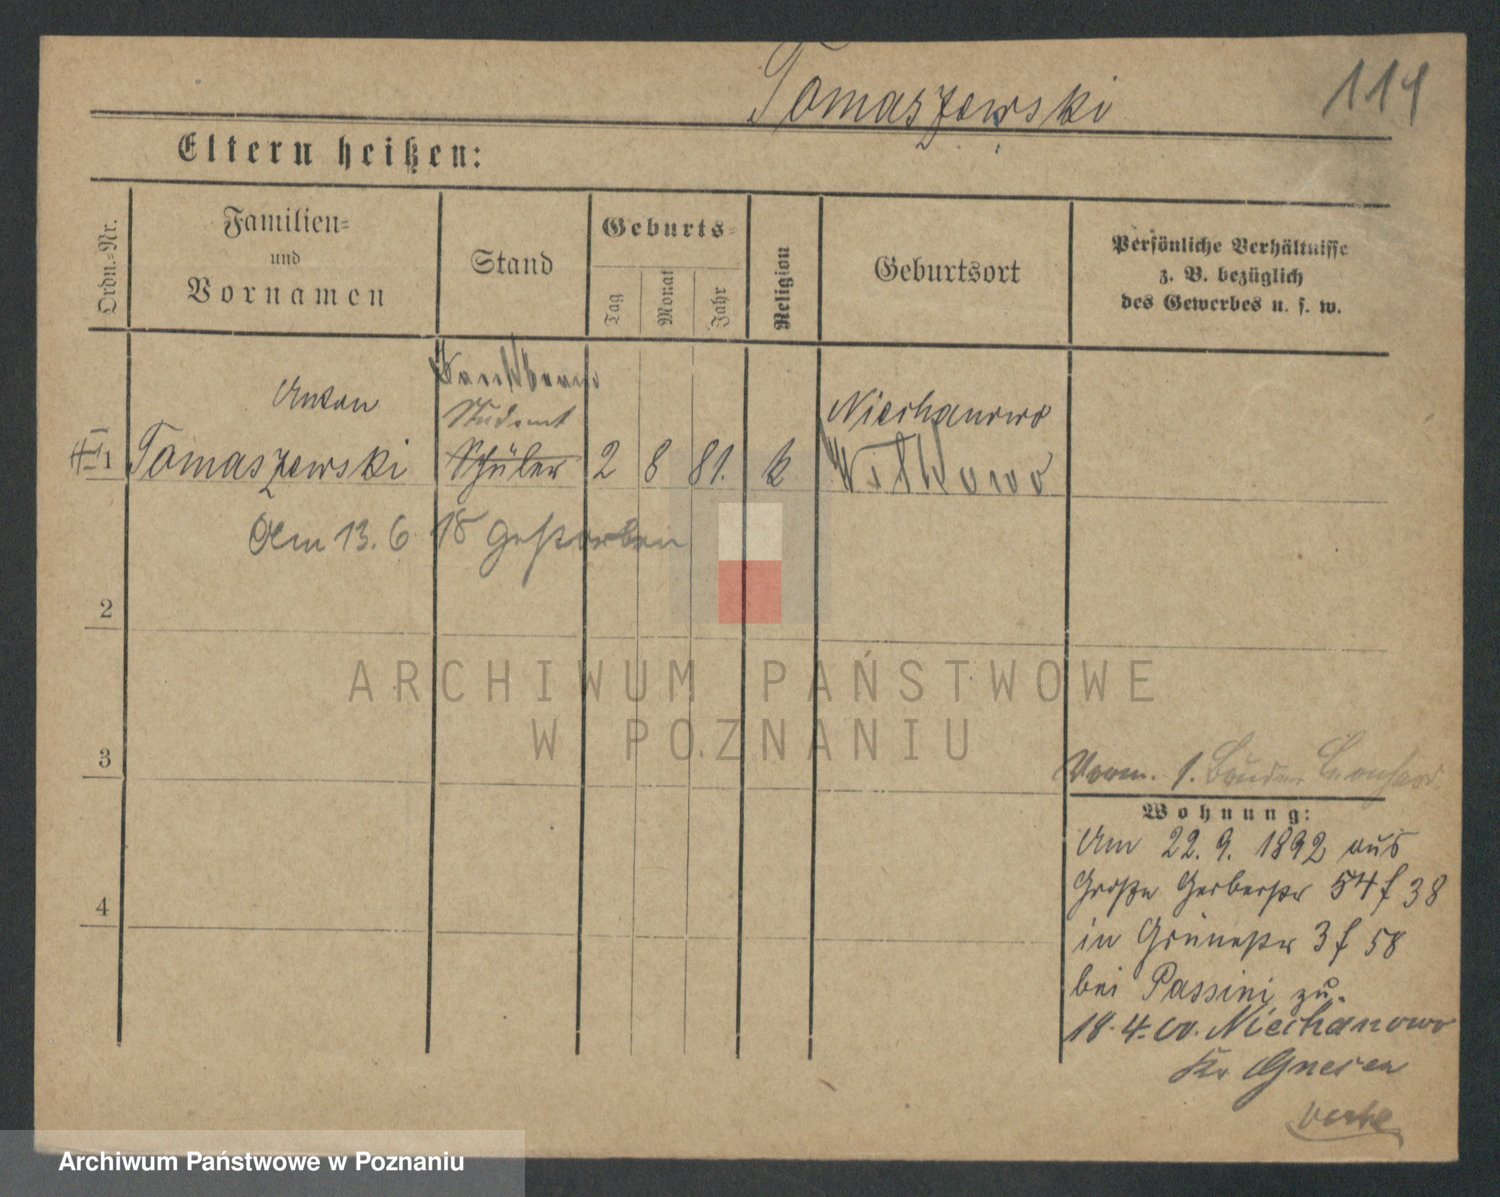 Tomaszewski
114
Eltern heißen:
Ordn.-Nr.
Familien-
und
Vornamen
Stand
Geburts-
Tag
Monat
Jahr
Religion
Geburtsort
Persönliche Verhältnisse
z. B. bezüglich
des Gewerbes u. s. w.
Anton
Student
Niechanowo
1 Tomaszewski Schüler 2 8 81. k Witkowo
Am 13. 6 18 gestorben
2
3
4
Vorm. 1. Bruder
Wohnung:
Am 22. 9. 1892 aus
Große Gerberstr 54 f 38
in Grünestr 3 f 58
bei Passini zu.
18. 4. 00. Niechanowo
Kr Gnesen
verte
ARCHIWUM PAŃSTWOWE
W POZNANIU
Archiwum Państwowe w Poznaniu